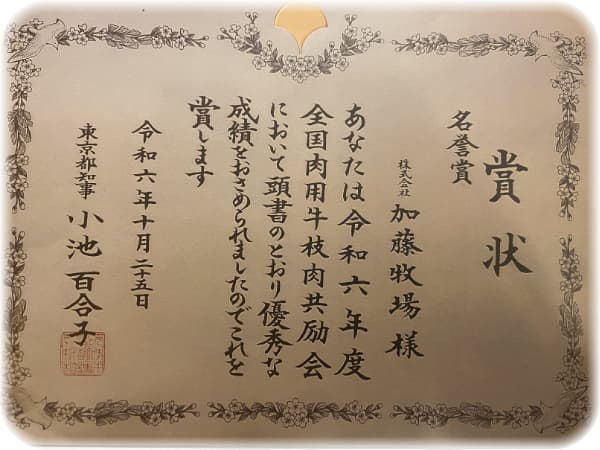 賞状
名誉賞
株式会社 加藤牧場様
あなたは令和六年度
全国肉用牛枝肉共励会
において頭書のとおり優秀な
成績をおさめられましたのでこれを
賞します
令和六年十月二十五日
東京都知事 小池百合子